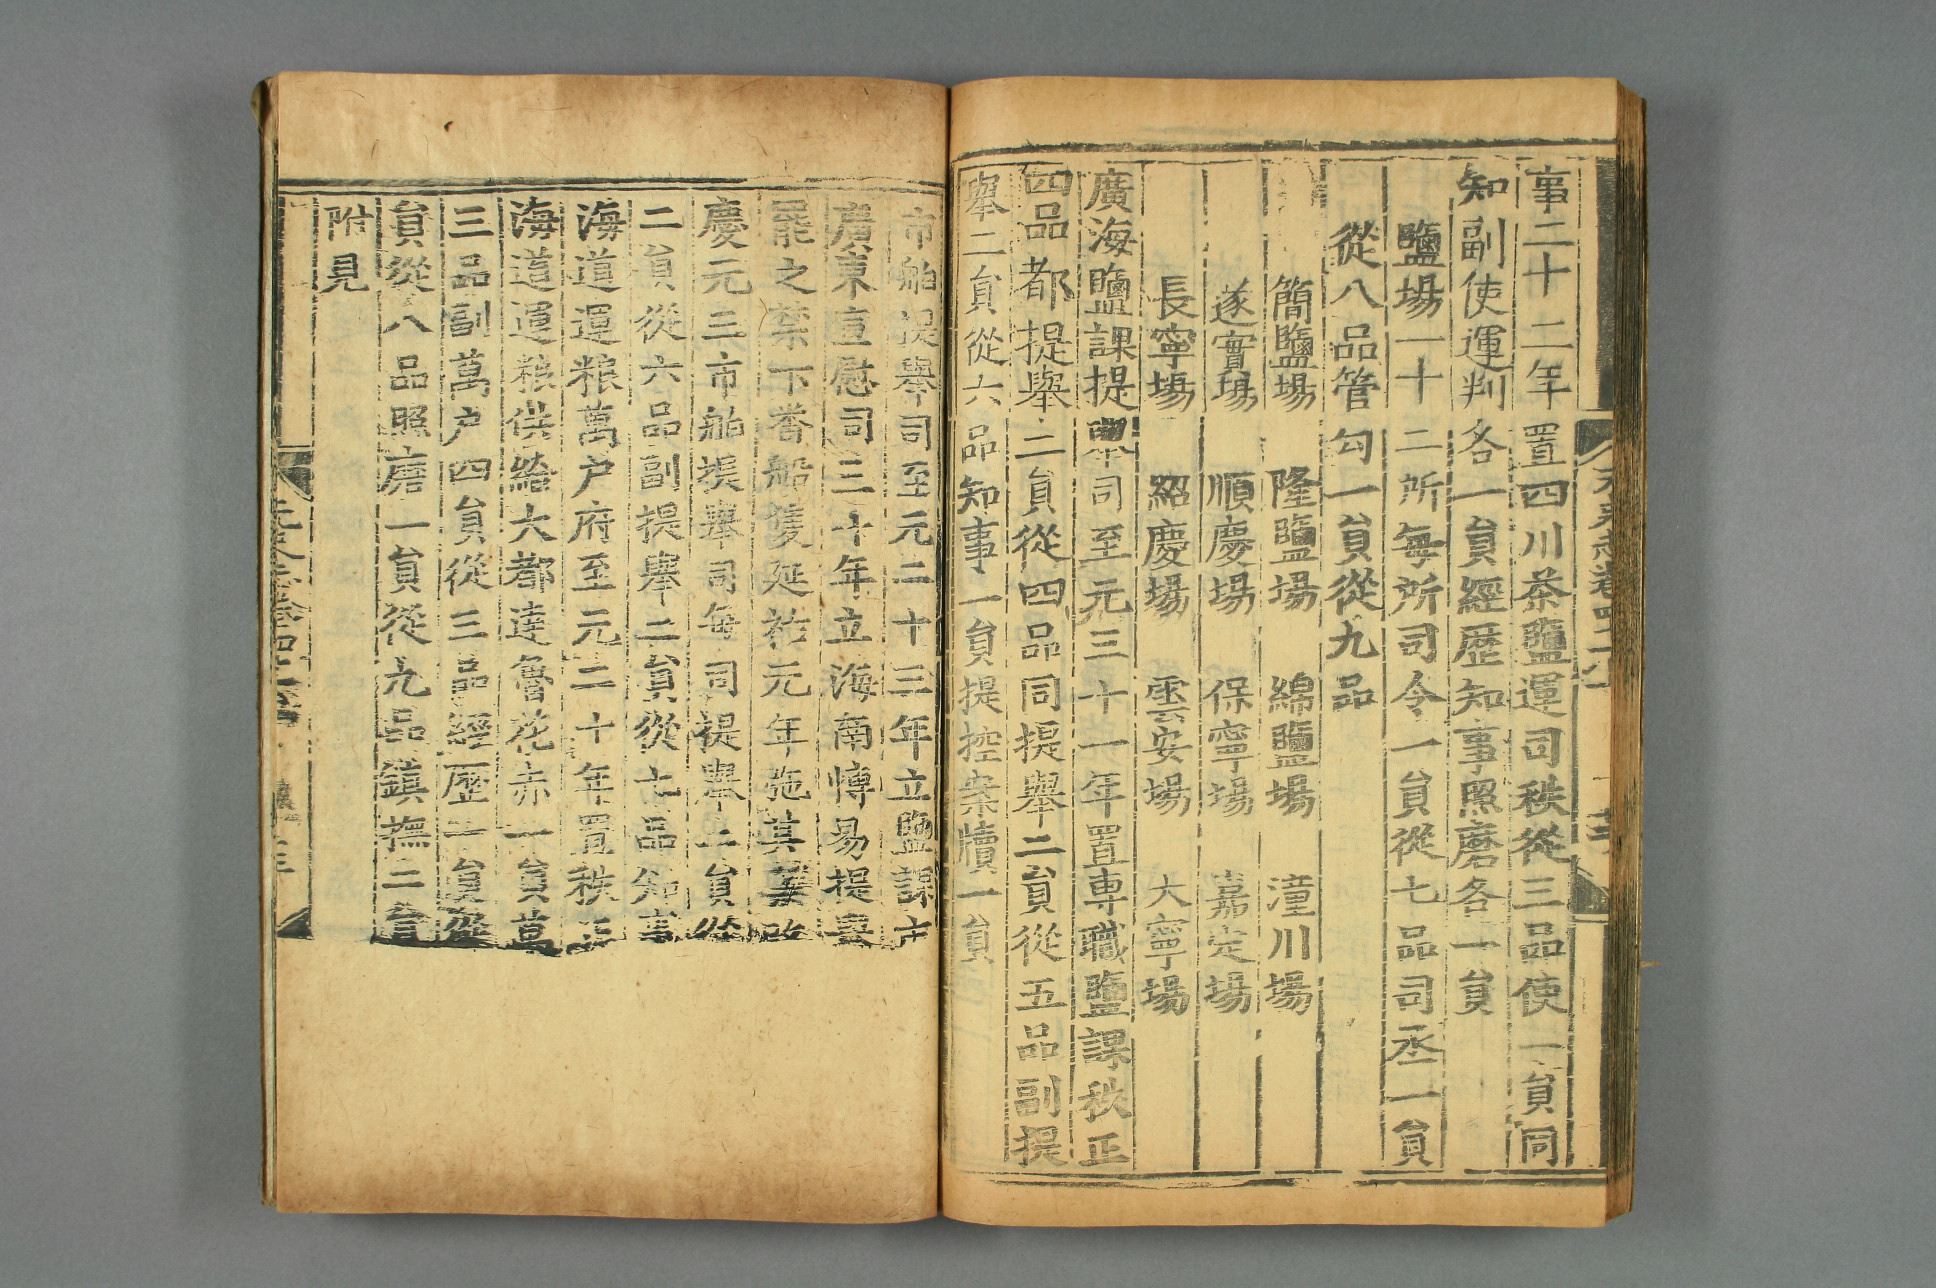 事二十二年置四川茶鹽運司秩從三品使一員同
知副使運判各一員經歷知事照磨各一員
鹽場一十二所每所司令一員從七品司丞一員
從八品管勾一員從九品
簡鹽場 隆鹽場 綿鹽場 潼川場
遂實場 順慶場 保寧場 嘉定場
長寧場 紹慶場 雲安場 大寧場
廣海鹽課提舉司至元三十一年置專職鹽課秩正
四品都提舉二員從四品同提舉二員從五品副提
舉二員從六品知事一員提控案牘一員
市舶提舉司至元二十三年立鹽課市
廣東宣慰司三十年立海南愽易提舉
罷之禁下番船隻延祐元年弛其禁改
慶元三市舶提舉司每司提舉二員從
二員從六品副提舉二員從七品知事
海道運粮萬户府至元二十年置秩正
海道運粮供給大都達魯花赤一員萬
三品副萬户四員從三品經歷一員從
員從八品照磨一員從九品鎮撫二員
附見